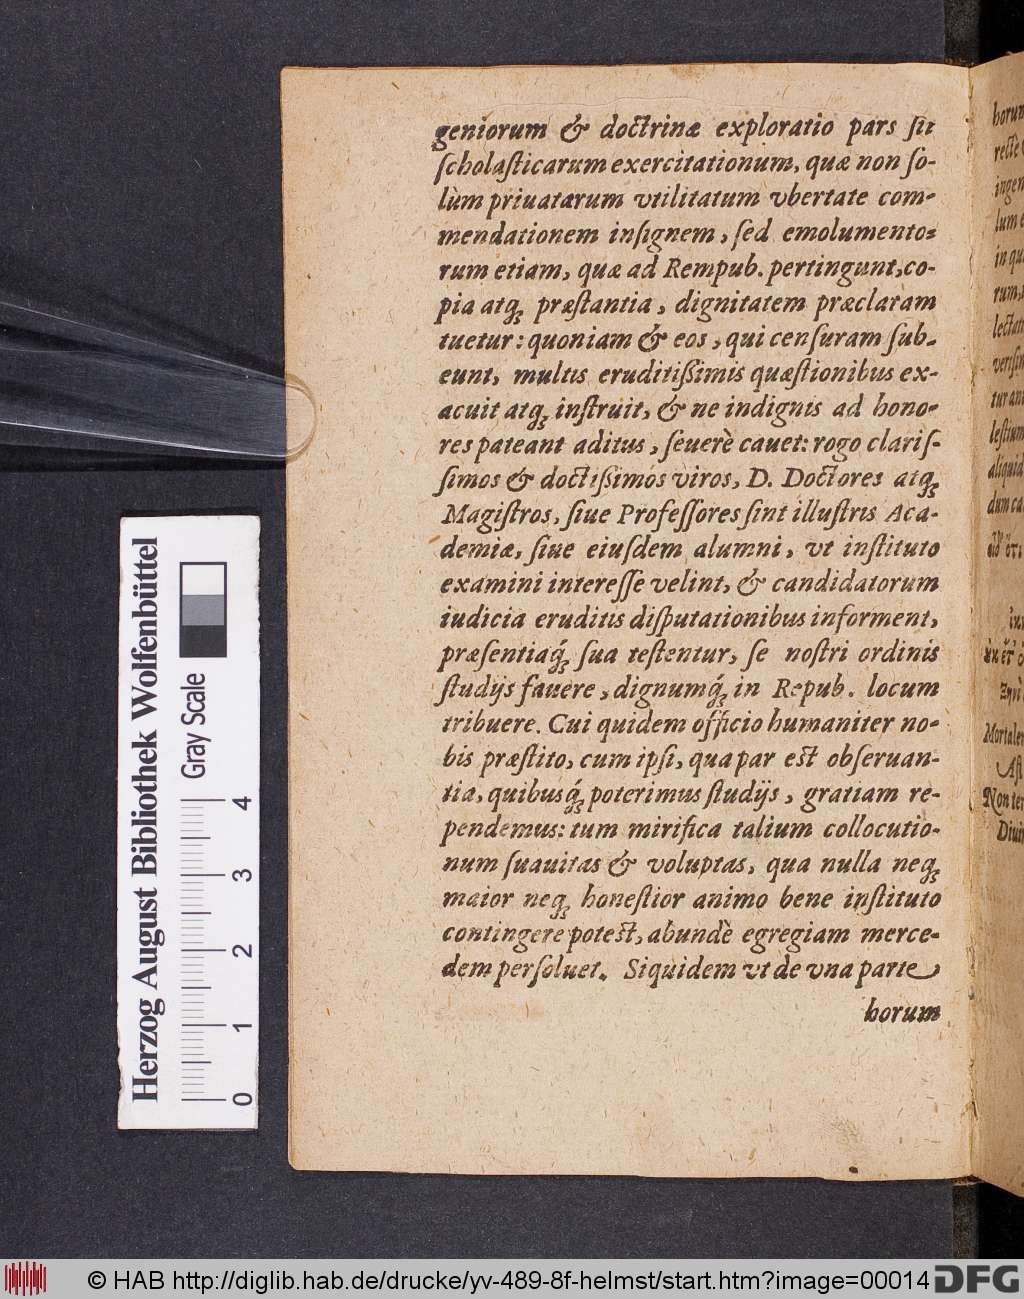 geniorum & doctrinæ exploratio pars sit
scholasticarum exercitationum, quæ non so-
lùm priuatarum vtilitatum vbertate com-
mendationem insignem, sed emolumento-
rum etiam, quæ ad Rempub. pertingunt, co-
pia atq; præstantia, dignitatem præclaram
tuetur: quoniam & eos, qui censuram sub-
eunt, multis eruditißimis quæstionibus ex-
acuit atq; instruit, & ne indignis ad hono-
res pateant aditus, seuerè cauet: rogo claris-
simos & doctißimos viros, D. Doctores atq;
Magistros, siue Professores sint illustris Aca-
demiæ, siue eiusdem alumni, vt instituto
examini interesse velint, & candidatorum
iudicia eruditis disputationibus informent,
præsentiaq́; sua testentur, se nostri ordinis
studijs fauere, dignumq́; in Repub. locum
tribuere. Cui quidem officio humaniter no-
bis præstito, cum ipsi, qua par est obseruan-
tia, quibusq́; poterimus studijs, gratiam re-
pendemus: tum mirifica talium collocutio-
num suauitas & voluptas, qua nulla neq;
maior neq; honestior animo bene instituto
contingere potest, abundè egregiam merce-
dem persoluet. Siquidem vt de vna parte
horum
Herzog August Bibliothek Wolfenbüttel
Gray Scale
0 1 2 3 4
© HAB http://diglib.hab.de/drucke/yv-489-8f-helmst/start.htm?image=00014
DFG